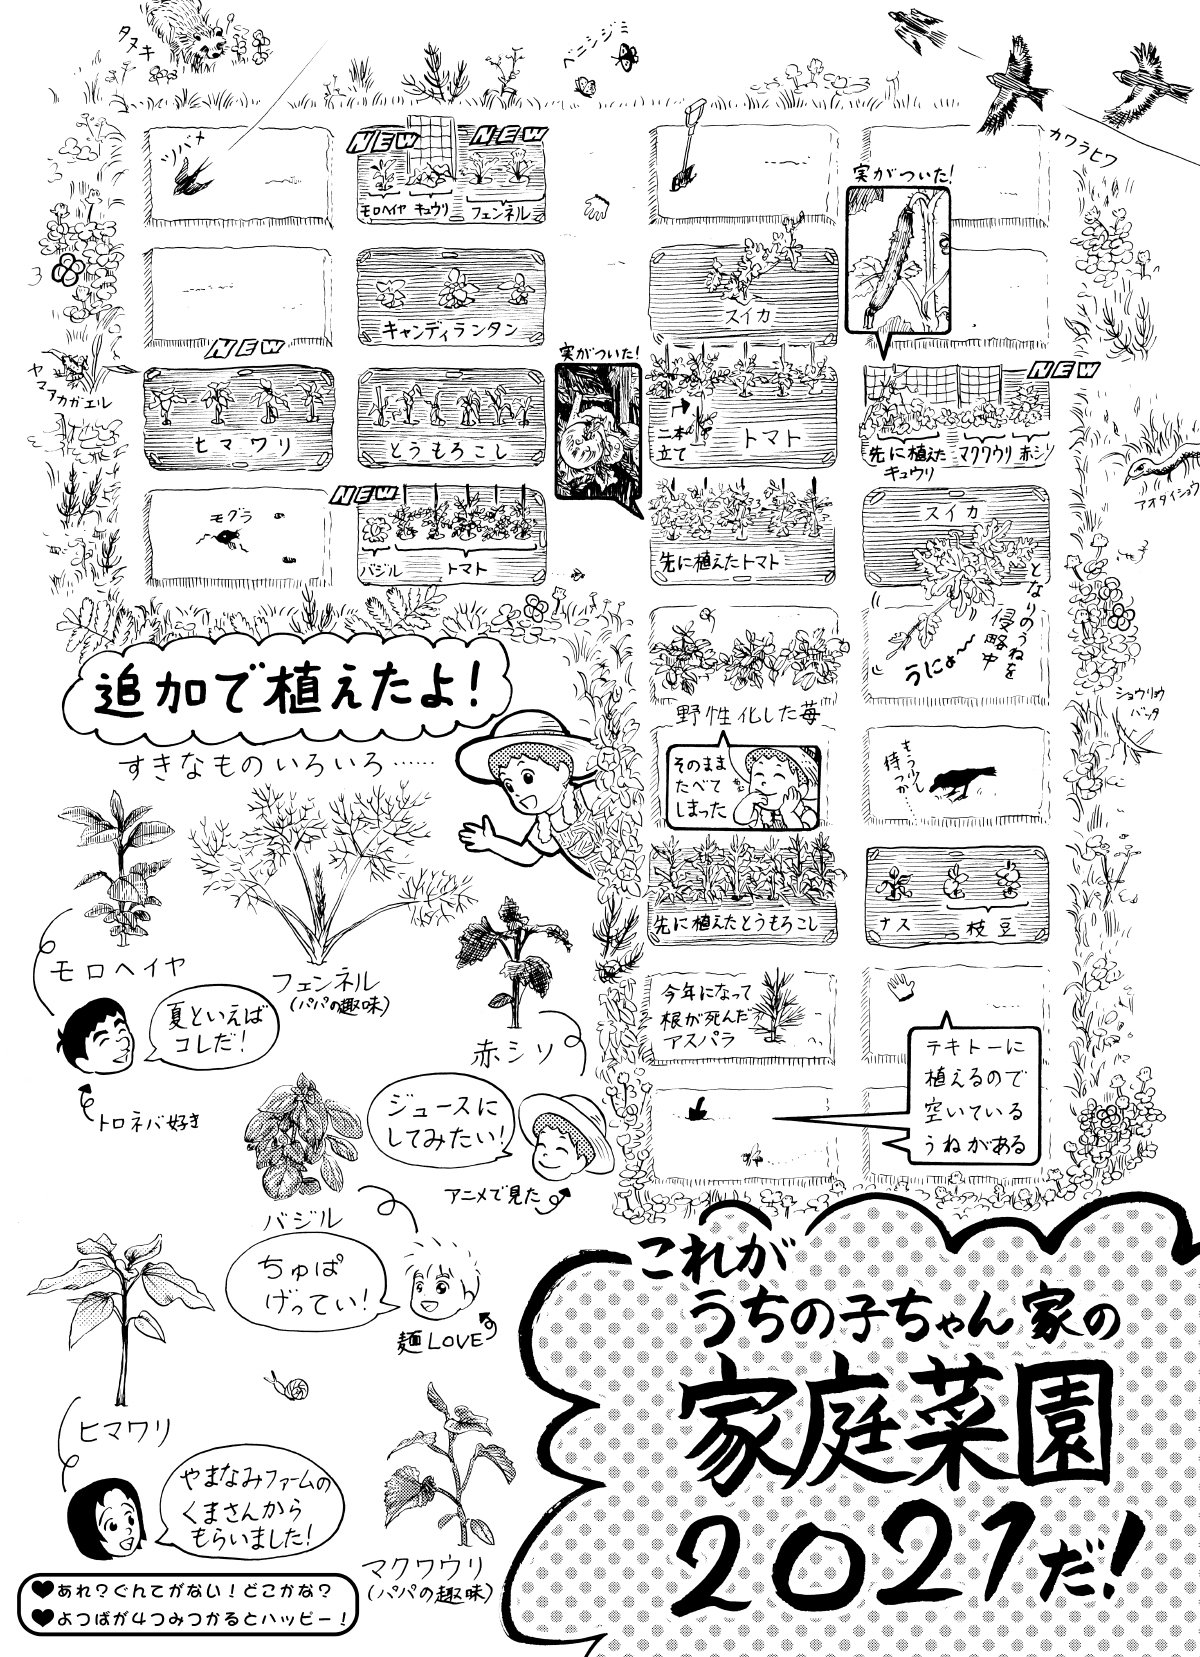 タヌキ
ベニシジミ
カワラヒワ
ツバメ
NEW
NEW
モロヘイヤ キュウリ フェンネル
実がついた!
キャンディランタン
スイカ
ヤマアカガエル
NEW
ヒマワリ
とうもろこし
実がついた!
二本立て
トマト
NEW
先に植えた
キュウリ
マクワウリ 赤シソ
アオダイショウ
モグラ
NEW
バジル トマト
先に植えたトマト
スイカ
となりのうねを
侵略中
うにょ〜
野性化した苺
そのまま
たべて
しまった
ショウリョウ
バッタ
もう少し
待つか……
先に植えたとうもろこし
ナス 枝豆
今年になって
根が死んだ
アスパラ
テキトーに
植えるので
空いている
うねがある
追加で植えたよ!
すきなものいろいろ……
モロヘイヤ
夏といえば
コレだ!
トロネバ好き
フェンネル
(パパの趣味)
赤シソ
ジュースに
してみたい!
アニメで見た
バジル
ちゅぱ
げってい!
麺LOVE
ヒマワリ
やまなみファームの
くまさんから
もらいました!
マクワウリ
(パパの趣味)
♥あれ?ぐんてがない!どこかな?
♥よつばが4つみつかるとハッピー!
これが
うちの子ちゃん家の
家庭菜園
2021だ!